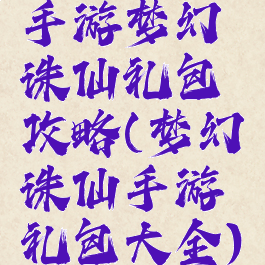 手游梦幻
诛仙礼包
攻略(梦幻
诛仙手游
礼包大全)